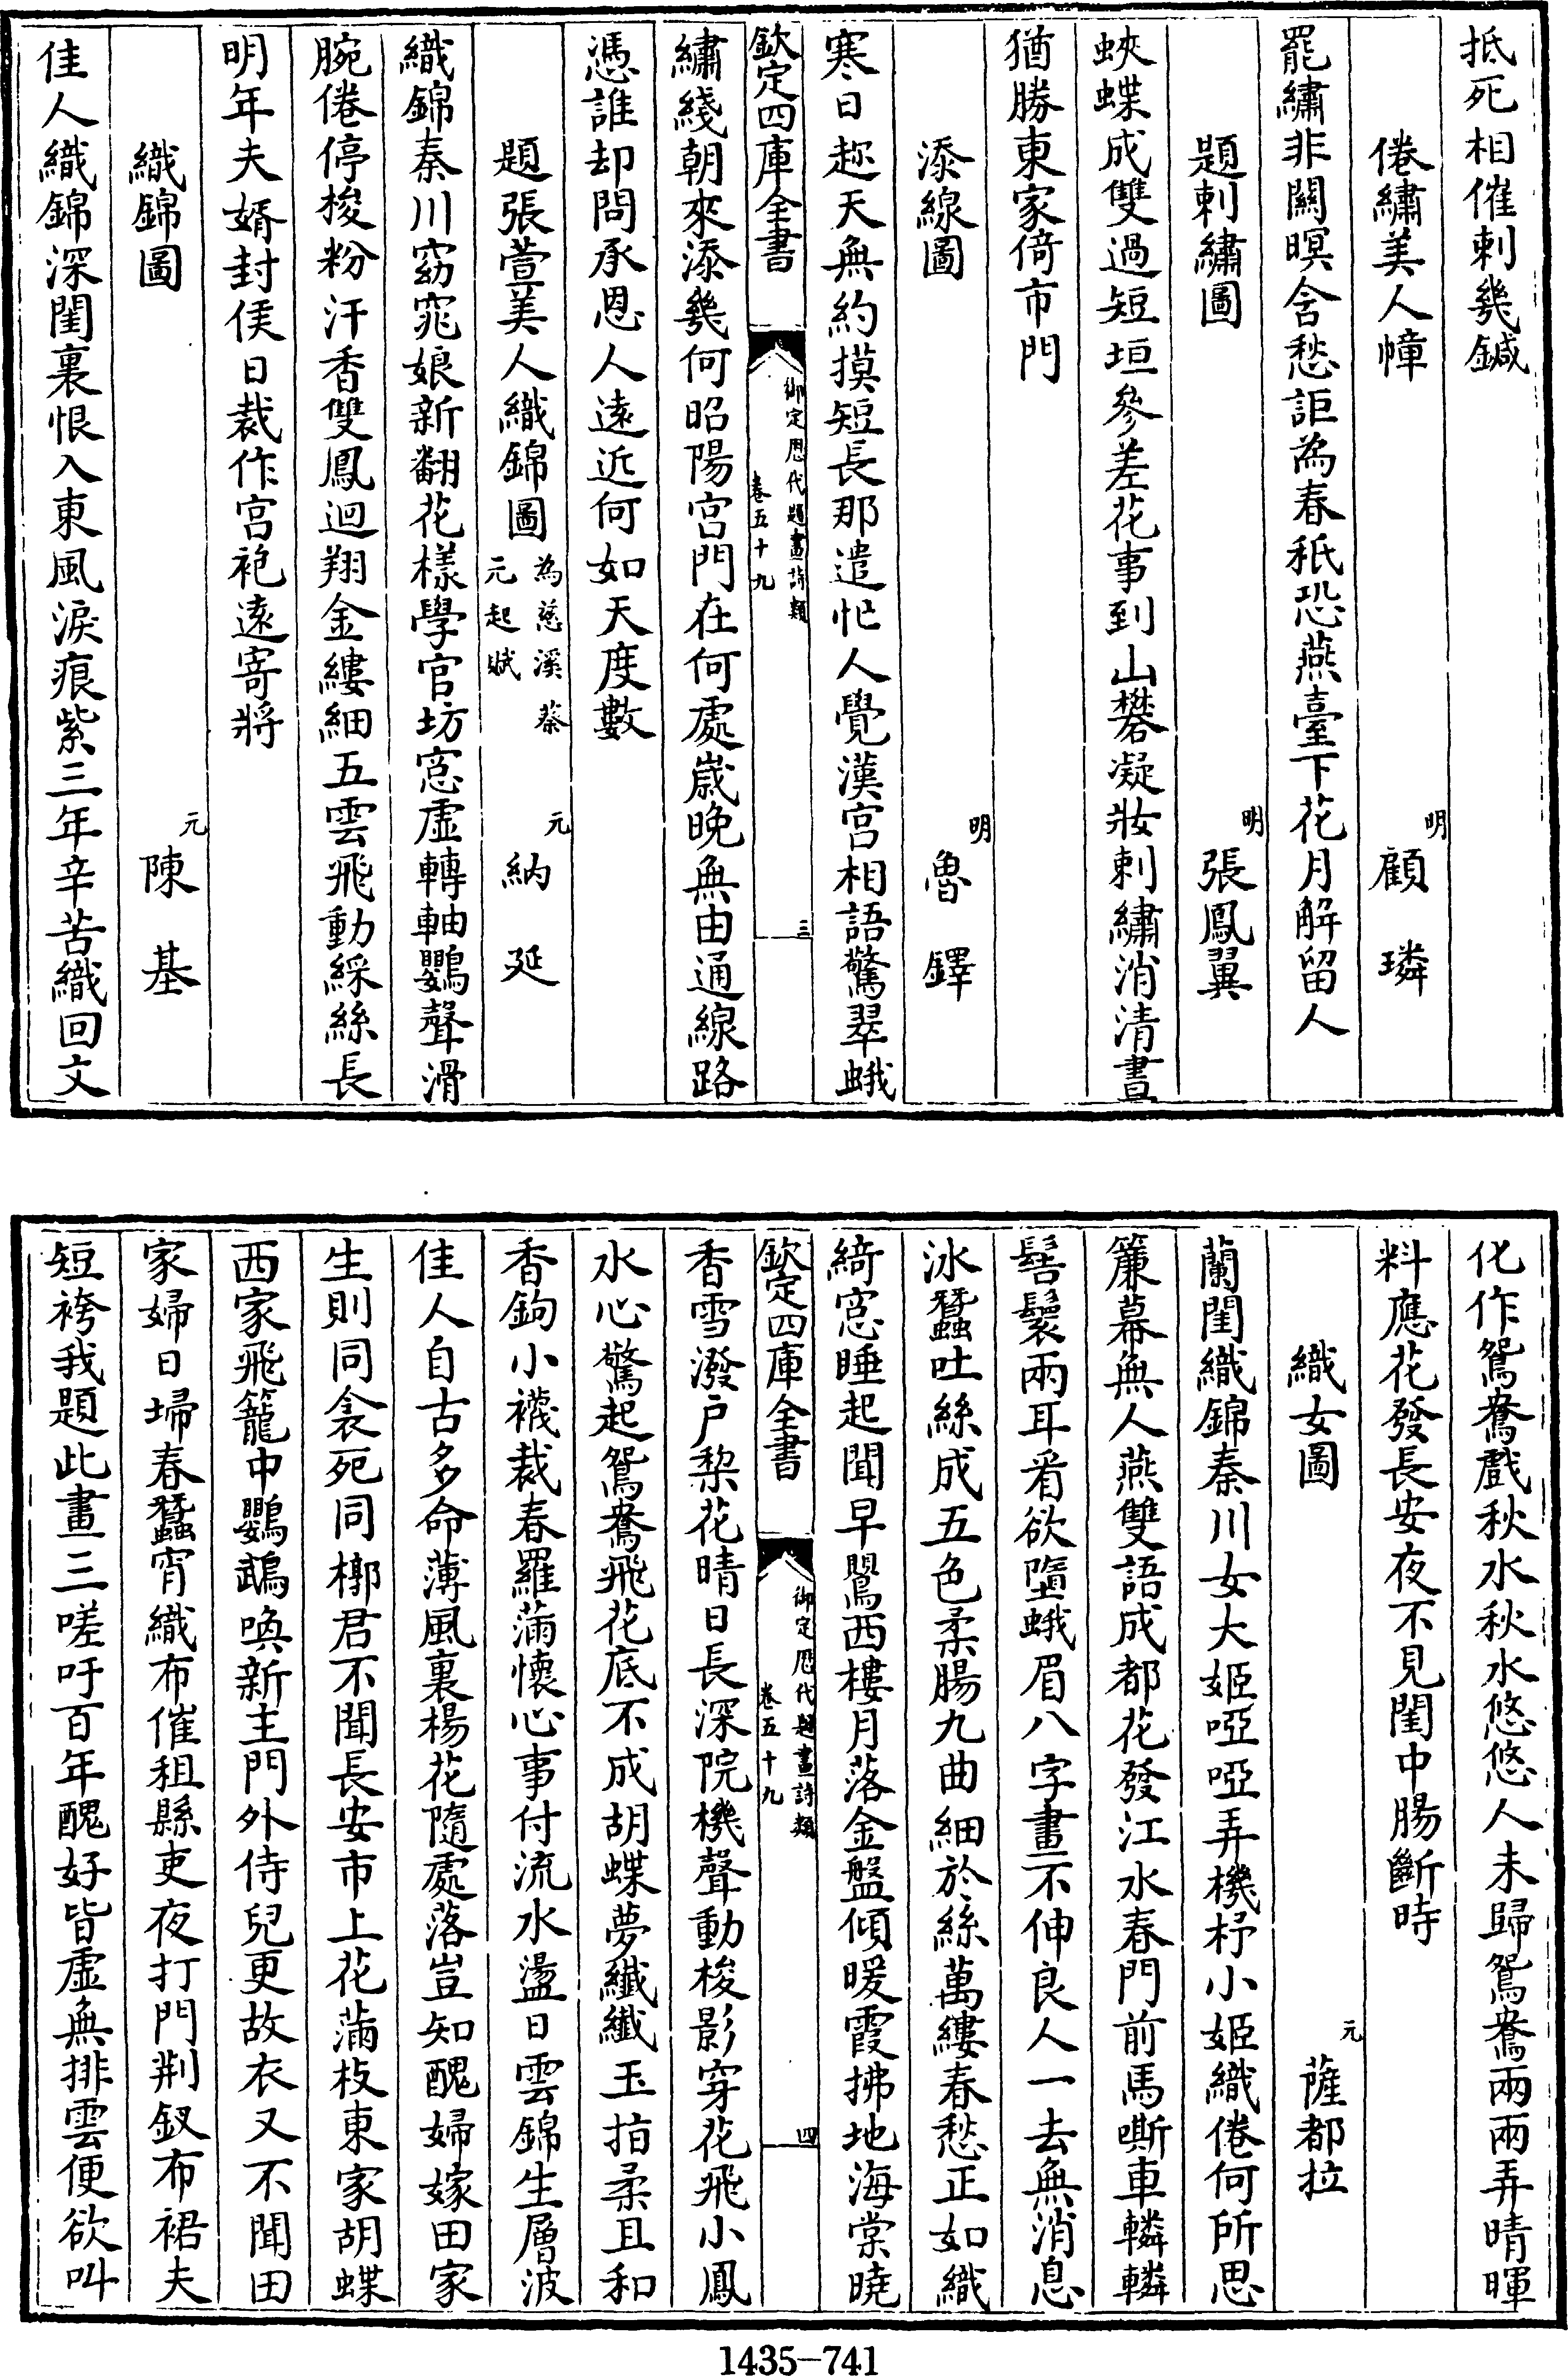 抵死相催刺幾鍼
倦繡美人幛 明 顧璘
罷繡非關暝含愁詎為春秖恐燕臺下花月解留人
題刺繡圖 明 張鳳翼
蛺蝶成雙過短垣參差花事到山礬凝妝刺繡消清晝
猶勝東家倚市門
添線圖 明 魯鐸
寒日趂天無約摸短長那遣忙人覺漢宮相語驚翠蛾
欽定四庫全書 御定歴代題畫詩類 卷五十九 三
繡綫朝來添幾何昭陽宮門在何處歲晚無由通線路
憑誰却問承恩人遠近何如天度數
題張萱美人織錦圖 為慈溪蔡元起賦 元 納延
織錦秦川窈窕娘新翻花樣學官坊窓虛轉軸鸚聲滑
腕倦停梭粉汗香雙鳳迴翔金縷細五雲飛動綵絲長
明年夫婿封侯日裁作宮袍遠寄將
織錦圖 元 陳基
佳人織錦深閨裏恨入東風淚痕紫三年辛苦織回文
化作鴛鴦戲秋水秋水悠悠人未歸鴛鴦兩兩弄晴暉
料應花發長安夜不見閨中腸斷時
織女圖 元 薩都拉
蘭閨織錦秦川女大姬啞啞弄機杼小姬織倦何所思
簾幕無人燕雙語成都花發江水春門前馬嘶車轔轔
髻鬟兩耳看欲墮蛾眉八字畫不伸良人一去無消息
氷蠶吐絲成五色柔腸九曲細於絲萬縷春愁正如織
綺窓睡起聞早鸎西樓月落金盤傾暖霞拂地海棠曉
欽定四庫全書 御定歴代題畫詩類 卷五十九 四
香雪潑戶棃花晴日長深院機聲動梭影穿花飛小鳳
水心驚起鴛鴦飛花底不成胡蝶夢纖纖玉指柔且和
香鉤小襪裁春羅滿懷心事付流水盪日雲錦生層波
佳人自古多命薄風裏楊花隨處落豈知醜婦嫁田家
生則同衾死同槨君不聞長安市上花滿枝東家胡蝶
西家飛籠中鸚鵡喚新主門外侍兒更故衣又不聞田
家婦日埽春蠶宵織布催租縣吏夜打門荆釵布裙夫
短袴我題此畫三嗟吁百年醜好皆虛無排雲便欲叫
1435-741